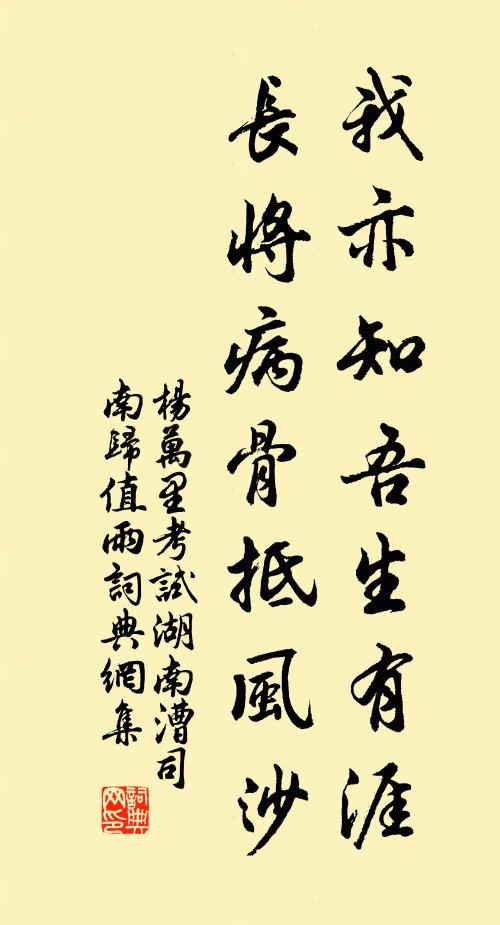 我亦知吾生有涯
長將病骨抵風沙
楊萬里考試湖南漕司
南歸值雨詞典網集
詞典网印